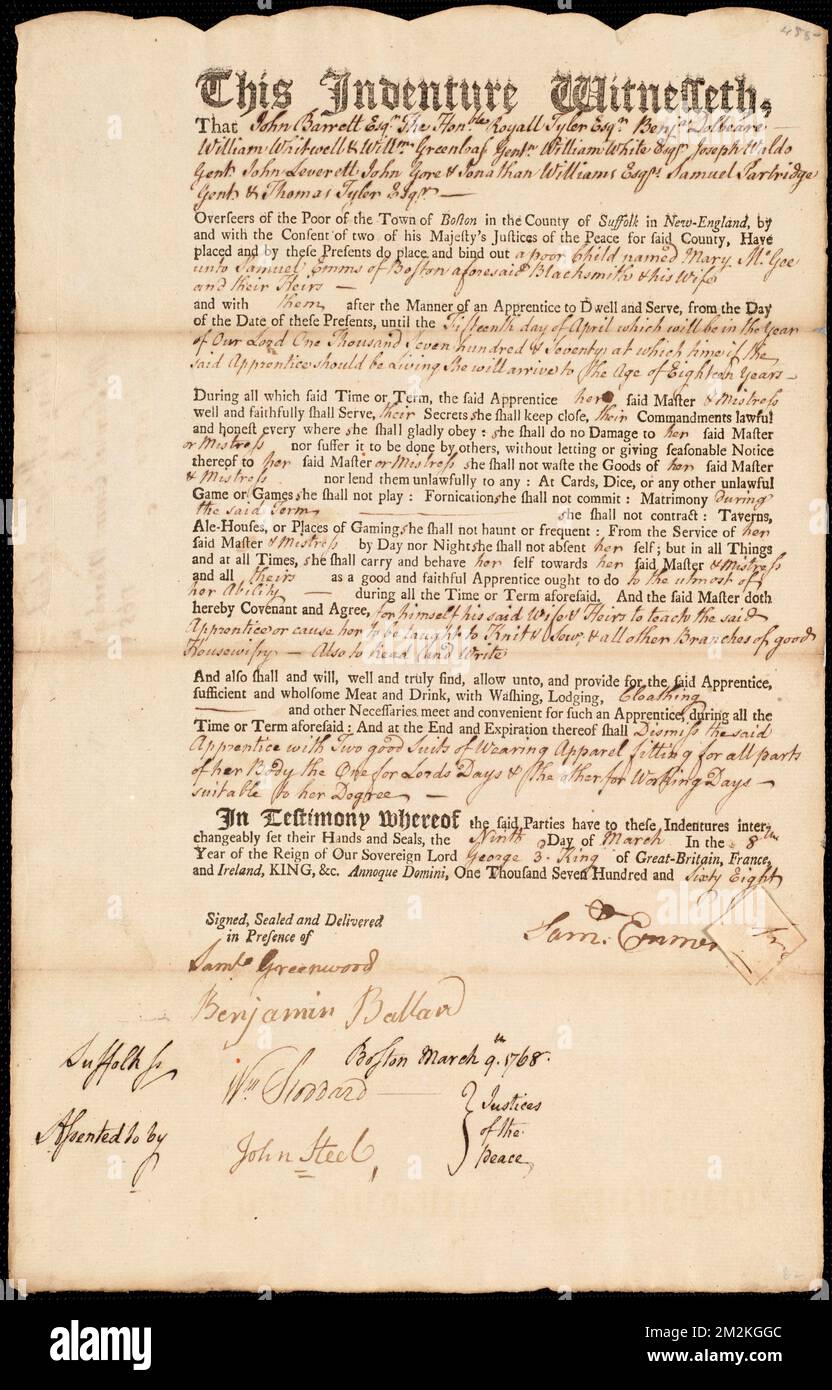 488-
This Indenture Witnesseth,
That John Barrett Esqr. The Honble Royall Tyler Esqr Benja. Dolbeare
William Whitwell & Willm Greenleaf Gentn William White Esqr. Joseph Waldo
Gent John Leverett John Gore & Jonathan Williams Esqs: Samuel Partridge
Gent: & Thomas Tyler Esqr. —
Overseers of the Poor of the Town of Boston in the County of Suffolk in New-England, by
and with the Consent of two of his Majesty's Justices of the Peace for said County, Have
placed and by these Presents do place and bind out a poor Child named Mary McGee
unto Samuel Emms of Boston aforesaid Blacksmith & his Wife
and their Heirs —
and with them after the Manner of an Apprentice to Dwell and Serve, from the Day
of the Date of these Presents, until the Fifteenth day of April which will be in the Year
of Our Lord One Thousand Seven hundred & Seventy at which time if the
said Apprentice should be Living She will arrive to the Age of Eighteen Years —
During all which said Time or Term, the said Apprentice her said Master & Mistress
well and faithfully shall Serve, their Secrets she shall keep close, their Commandments lawful
and honest every where she shall gladly obey: she shall do no Damage to her said Master
or Mistress nor suffer it to be done by others, without letting or giving seasonable Notice
thereof to her said Master or Mistress she shall not waste the Goods of her said Master
& Mistress nor lend them unlawfully to any: At Cards, Dice, or any other unlawful
Game or Games she shall not play: Fornication she shall not commit: Matrimony During
the said Term — she shall not contract: Taverns,
Ale-Houses, or Places of Gaming she shall not haunt or frequent: From the Service of her
said Master & Mistress by Day nor Night she shall not absent her self; but in all Things
and at all Times, she shall carry and behave her self towards her said Master & Mistress
and all theirs as a good and faithful Apprentice ought to do to the utmost of
her Ability — during all the Time or Term aforesaid. And the said Master doth
hereby Covenant and Agree, for himself his said Wife & Heirs to teach the said
Apprentice or cause her to be taught to Knit & Sew, & all other Branches of good
Housewifry — Also to Read and Write
And also shall and will, well and truly find, allow unto, and provide for the said Apprentice,
sufficient and wholsome Meat and Drink, with Washing, Lodging, Cloathing
— and other Necessaries meet and convenient for such an Apprentice, during all the
Time or Term aforesaid: And at the End and Expiration thereof shall Dismiss the said
Apprentice with Two good Suits of Wearing Apparel fitting for all parts
of her Body the One for Lords Days & the other for Working Days —
suitable to her Degree —
In Testimony whereof the said Parties have to these Indentures inter-
changeably set their Hands and Seals, the Ninth Day of March In the 8th
Year of the Reign of Our Sovereign Lord George 3. King of Great-Britain, France,
and Ireland, KING, &c. Annoque Domini, One Thousand Seven Hundred and Sixty Eight
Signed, Sealed and Delivered
in Presence of
Sam. Emmes
Saml Greenwood
Benjamin Ballard
Suffolk ss
Boston March 9th. 1768.
Wm Stoddard
Assented to by
John Steel,
Justices
of the
Peace
alamy
Image ID: 2M2KGGC
www.alamy.com